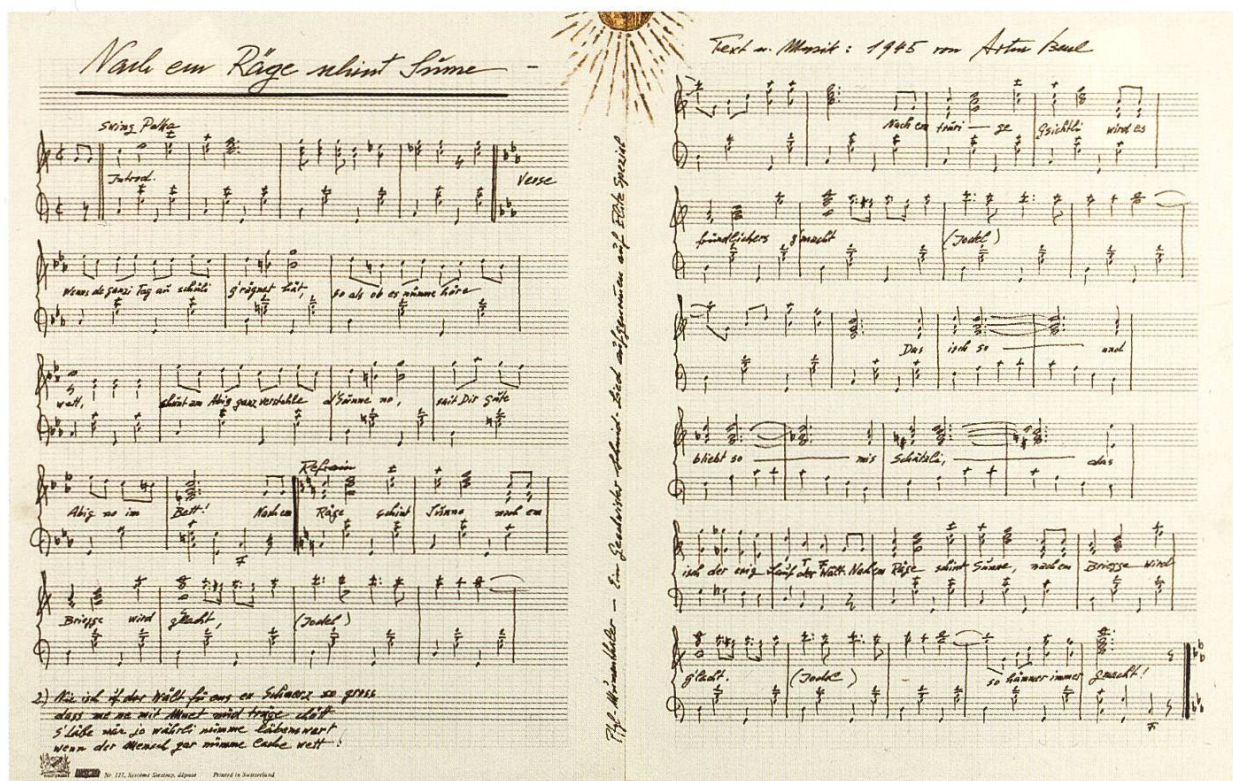 Nach em Räge schint Sunne
Swing Polka
Introd.
Verse
Wenns de ganzi Tag au schüli g'rägnet hät, so als ob es nümme höre
wett, schint am Abig ganz verstohle d'Sunne no, seit Dir guete
Abig no im Bett! Nach em
Refrain
Räge schint Sunne nach em
Briegge wird glacht,
(Jodel)
2) Nie isch uf der Wält für eus en Schmerz so gross
dass me ne mit Muet nid träge chött
S'Läbe wär jo währli nümme läbenswert
wenn der Mensch gar nümme lache wett!
Nr. 117, Printed in Switzerland
Ein Geschwister Schmid-Lied aufgenommen auf Elite Spezial
Text u. Musik: 1945 von Artur Beul
Nach em trurige Gsichtli wird es
fründlichers gmacht
(Jodel)
Das isch so und
bliebt so mis Schätzli, das
isch der ewig Lauf der Wält. Nach em Räge schint Sunne, nach em Briegge wird
g'lacht. (Jodel) so hämmer immer gmacht!